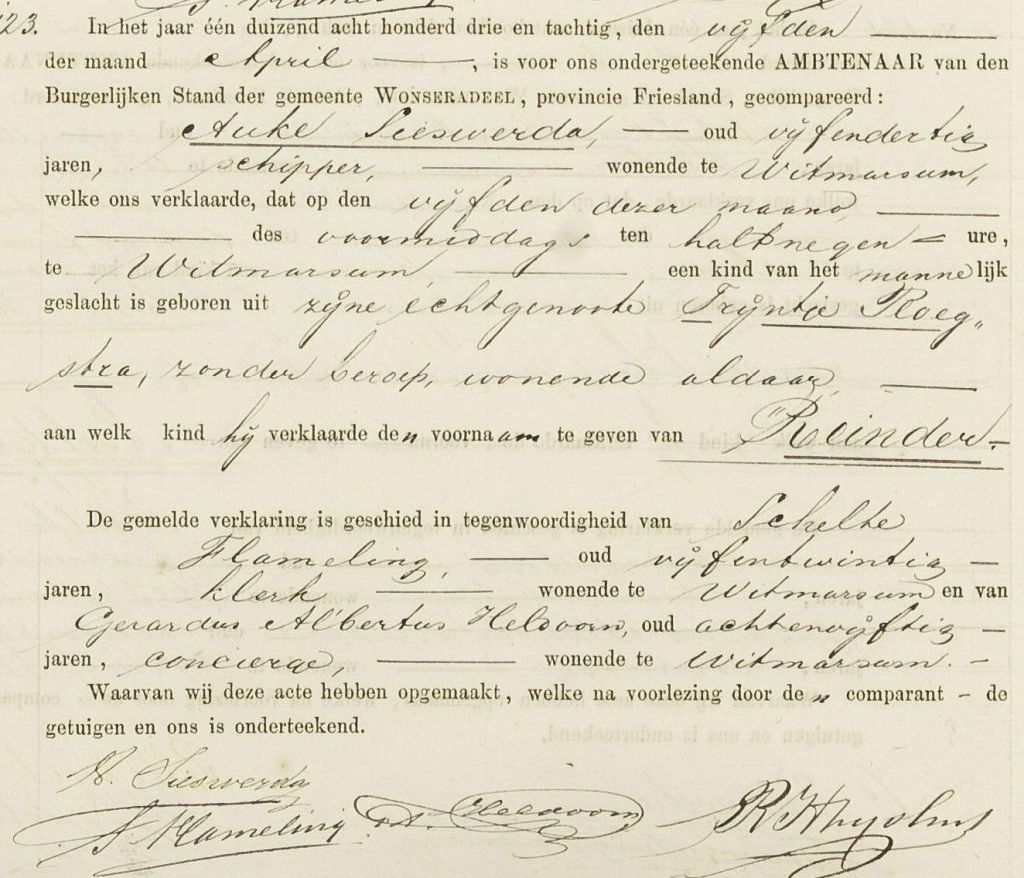 123. In het jaar één duizend acht honderd drie en tachtig, den vijfden
der maand April, is voor ons ondergeteekende AMBTENAAR van den
Burgerlijken Stand der gemeente WONSERADEEL, provincie Friesland, gecompareerd:
Auke Sieswerda, oud vijfendertig
jaren, schipper, wonende te Witmarsum,
welke ons verklaarde, dat op den vijfden dezer maand,
des voormiddags ten halfnegen ure,
te Witmarsum een kind van het mannelijk
geslacht is geboren uit zijne echtgenoote Trijntje Ploeg„
stra, zonder beroep, wonende aldaar,
aan welk kind hij verklaarde den voornaam te geven van Reinder
De gemelde verklaring is geschied in tegenwoordigheid van Schelte
Flameling, oud vijfentwintig
jaren, klerk wonende te Witmarsum en van
Gerardus Albertus Heldoorn, oud achtenvijftig
jaren, concierge, wonende te Witmarsum.
Waarvan wij deze acte hebben opgemaakt, welke na voorlezing door den comparant de
getuigen en ons is onderteekend.
A. Sieswerda
S Flameling G.A. Heldoorn